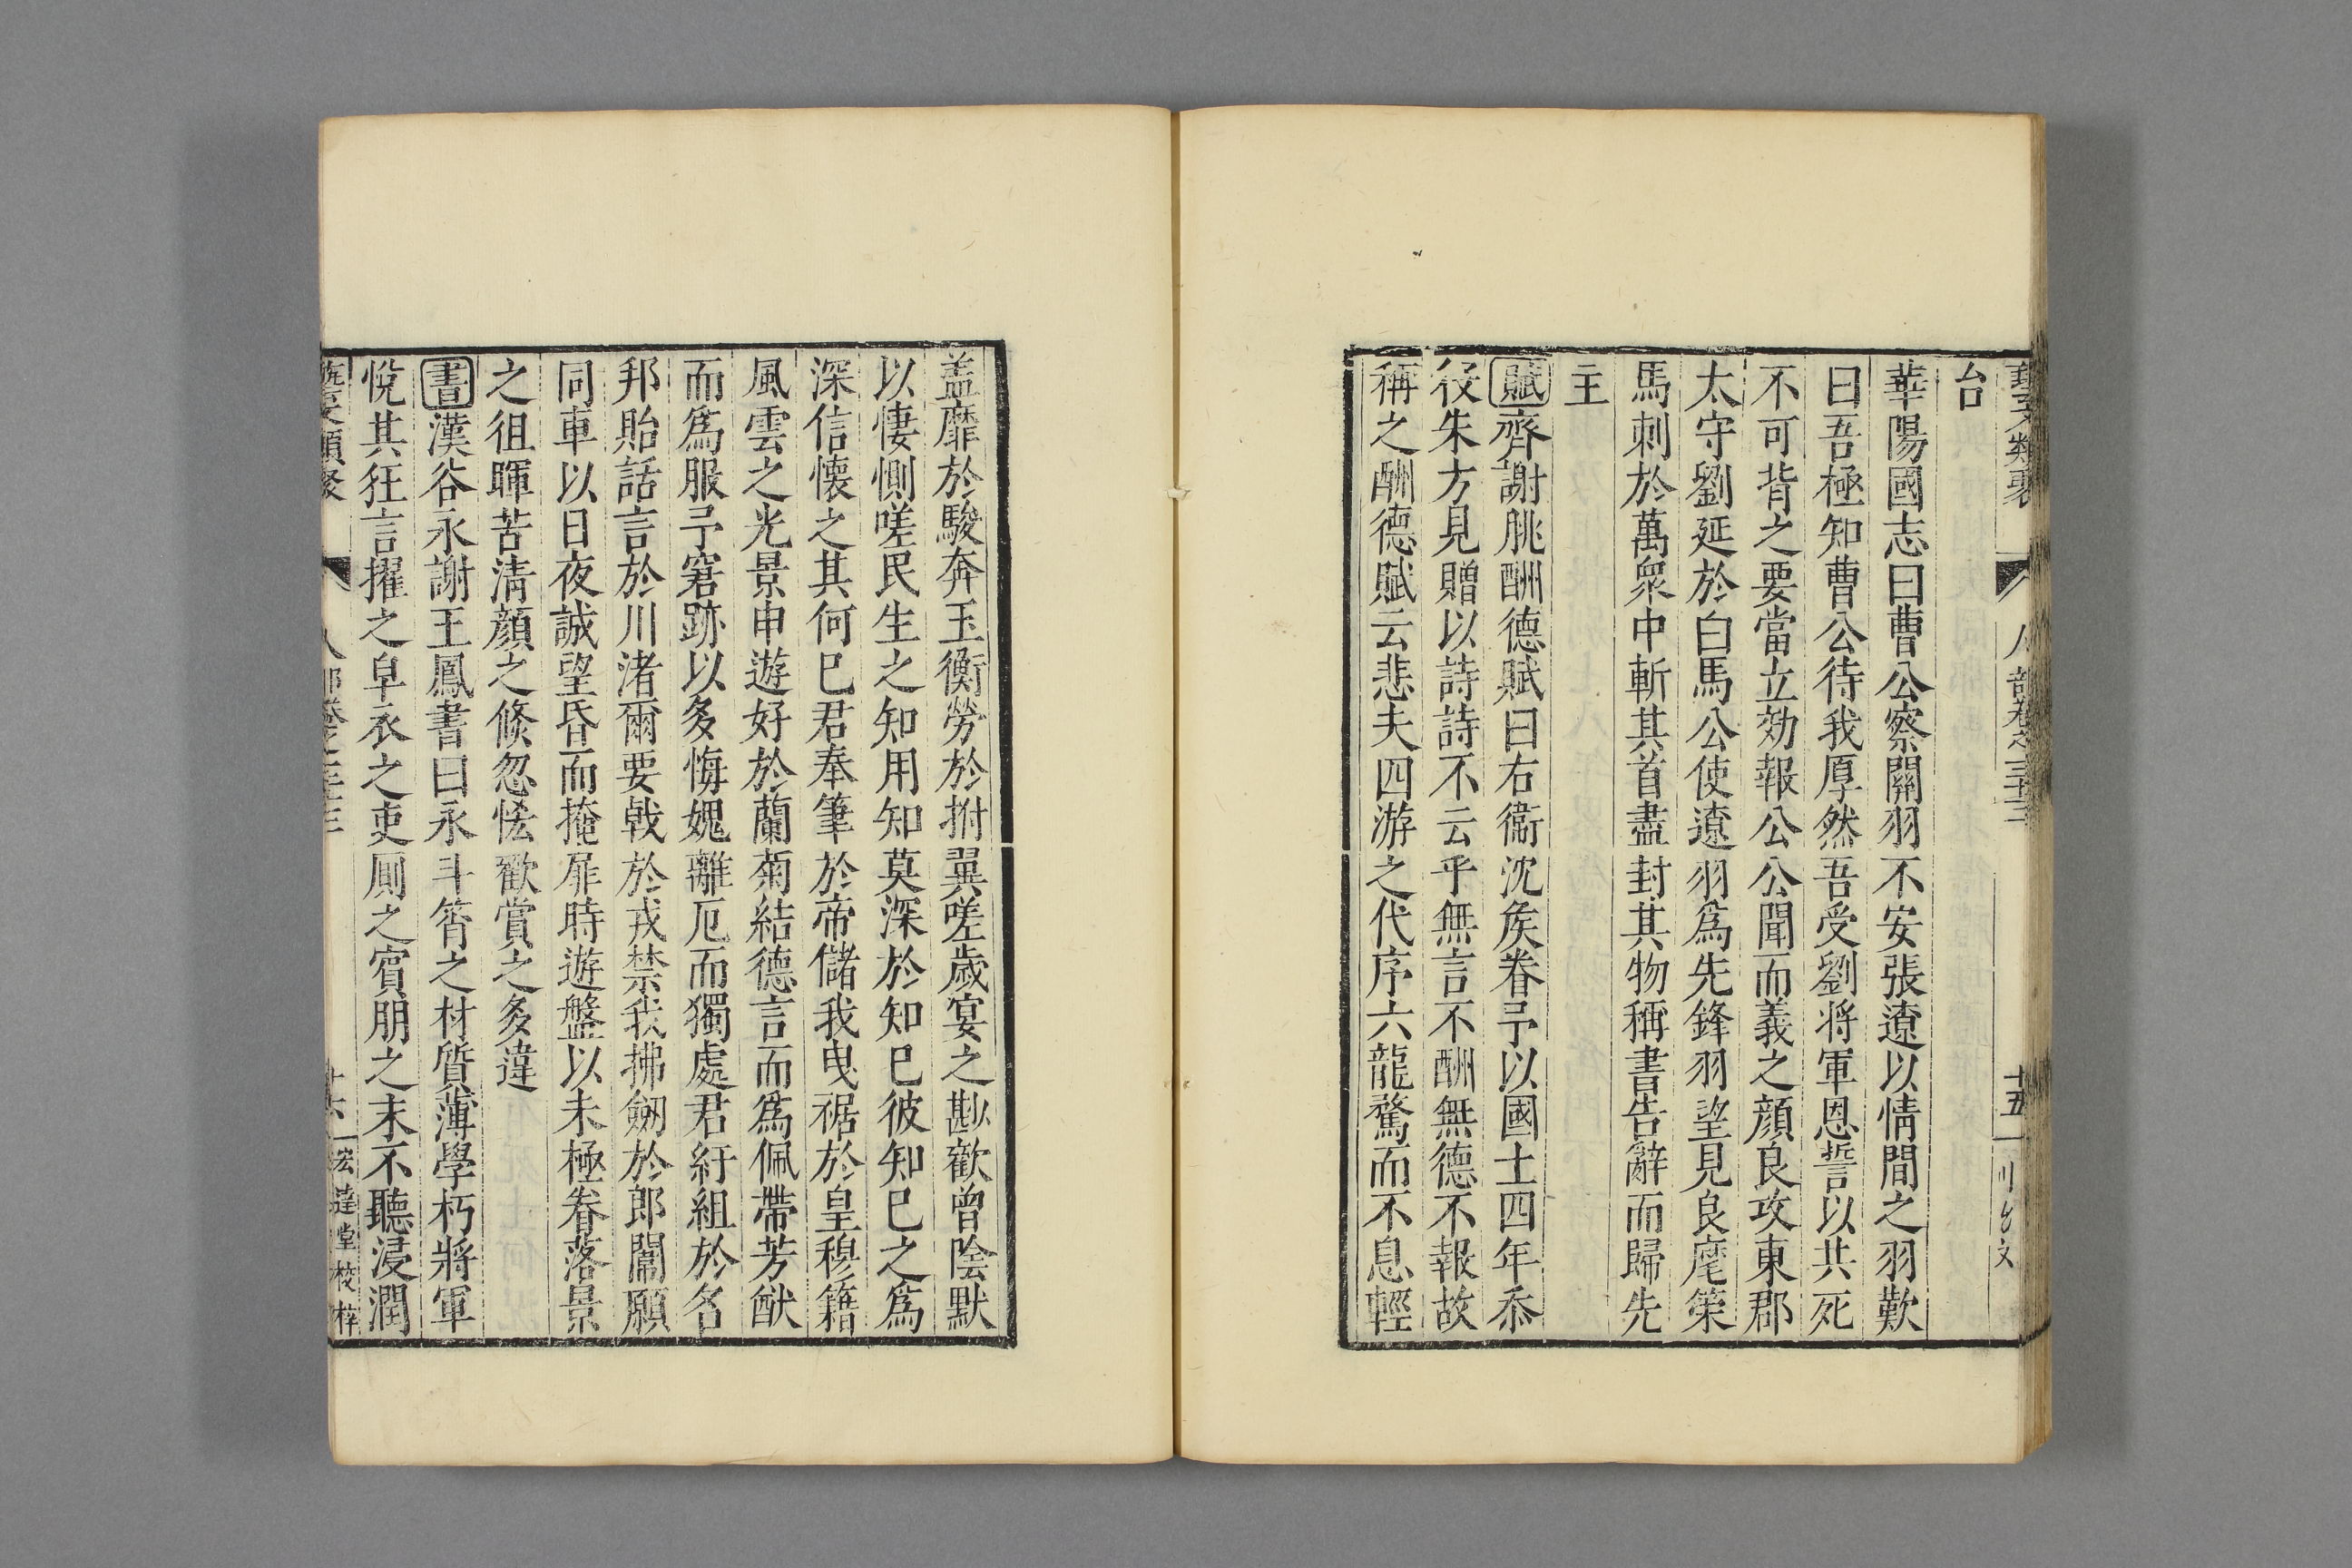 台
華陽國志曰曹公察關羽不安張遼以情間之羽歎
曰吾極知曹公待我厚然吾受劉將軍恩誓以共死
不可背之要當立効報公公聞而義之顏良攻東郡
太守劉延於白馬公使遼羽爲先鋒羽望見良麾策
馬刺於萬衆中斬其首盡封其物稱書告辭而歸先
主
賦齊謝朓酬德賦曰右衞沈矦眷予以國士四年忝
役朱方見贈以詩詩不云乎無言不酬無德不報故
稱之酬德賦云悲夫四游之代序六龍騖而不息輕
盖靡於駿奔玉衡勞於拊翼嗟歲宴之尟歡曾陰默
以悽惻嗟民生之知用知莫深於知已彼知已之爲
深信懐之其何已君奉筆於帝儲我曳裾於皇穆籍
風雲之光景申遊好於蘭菊結德言而爲佩帶芳猷
而爲服予窘跡以多悔媿離厄而獨處君紆組於名
邦貽話言於川渚爾要戟於戎禁我拂劒於郎闈願
同車以日夜誠望昏而掩扉時遊盤以未極眷落景
之徂暉苦清顏之倏忽恡歡賞之多違
書漢谷永謝王鳳書曰永斗筲之材質薄學朽將軍
悅其狂言擢之皁衣之吏厠之賓朋之末不聽浸潤
宏達堂校梓